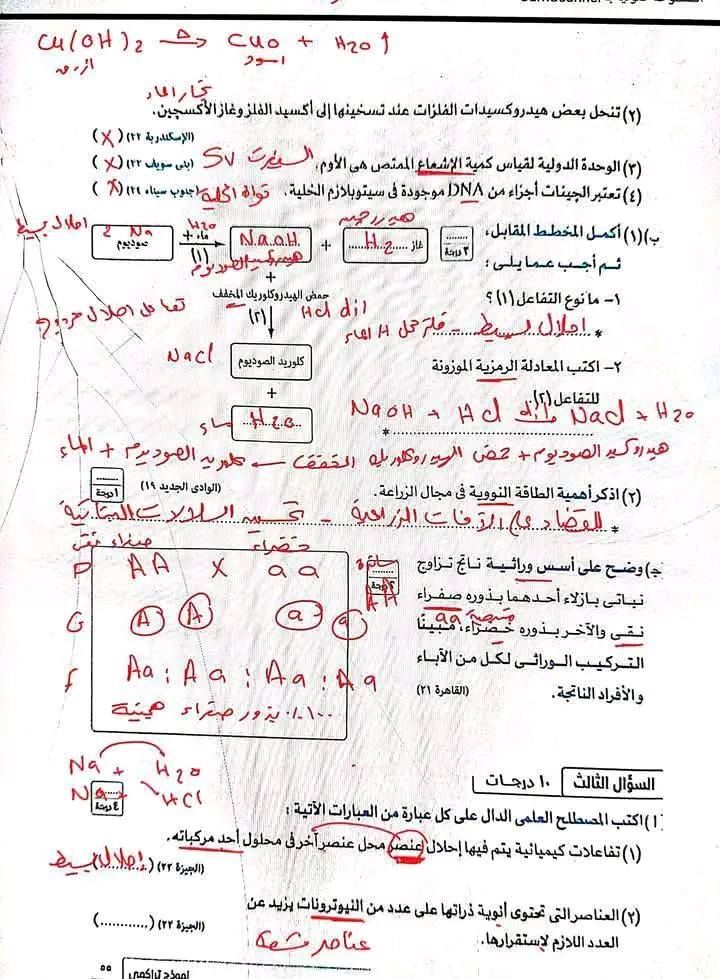 Cu(OH)2 Δ→ CuO + H2O ↑
ازرق اسود
بخار الماء
(٢) تنحل بعض هيدروكسيدات الفلزات عند تسخينها إلى أكسيد الفلز وغاز الأكسجين.
(الإسكندرية ٢٢) (X)
(٣) الوحدة الدولية لقياس كمية الإشعاع الممتص هى الأوم. السيفرت SV (بنى سويف ٢٢) (X)
(٤) تعتبر الجينات أجزاء من DNA موجودة فى سيتوبلازم الخلية. نواة الخلية (جنوب سيناء ٢٤) (X)
ب) (١) أكمل المخطط المقابل،
ثم أجب عما يلى :
٣ درجة
احلال بسيط
2 Na
صوديوم
H2O
+ ماء
(١)
NaOH
هيدروكسيد الصوديوم
+
هيدروجين
غاز H2
+
حمض الهيدروكلوريك المخفف
HCl dil
(٢)
تفاعل احلال مزدوج
NaCl
كلوريد الصوديوم
+
H2O
ماء
١- ما نوع التفاعل (١) ؟
* احلال بسيط - فلز محل H الماء
٢- اكتب المعادلة الرمزية الموزونة
للتفاعل (٢)
* NaOH + HCl dil→ NaCl + H2O
هيدروكسيد الصوديوم + حمض الهيدروكلوريك المخفف ← كلوريد الصوديوم + الماء
(٢) اذكر أهمية الطاقة النووية فى مجال الزراعة. (الوادى الجديد ١٩)
١ درجة
* القضاء على الآفات الزراعية - تحسين السلالات النباتية
ج) وضح على أسس وراثية ناتج تزاوج
نباتى بازلاء أحدهما بذوره صفراء
نقى والآخر بذوره خضراء، مبينًا
التركيب الوراثى لكل من الآباء
والأفراد الناتجة. (القاهرة ٢١)
٢ درجة
سائدة
AA
متنحية
aa
صفراء نقى خضراء
P AA X aa
G A A a a
F Aa : Aa : Aa : Aa
١٠٠٪ بذور صفراء هجينة
Na + H2O
Na + HCl
٤ درجة
السؤال الثالث ١٠ درجات
أ) اكتب المصطلح العلمى الدال على كل عبارة من العبارات الآتية :
(١) تفاعلات كيميائية يتم فيها إحلال عنصر محل عنصر آخر فى محلول أحد مركباته.
(الجيزة ٢٢) (إحلال بسيط)
(٢) العناصر التى تحتوى أنوية ذراتها على عدد من النيوترونات يزيد عن
العدد اللازم لإستقرارها. (الجيزة ٢٢) (............)
عناصر مشعة
نموذج تراكمى ٥٥